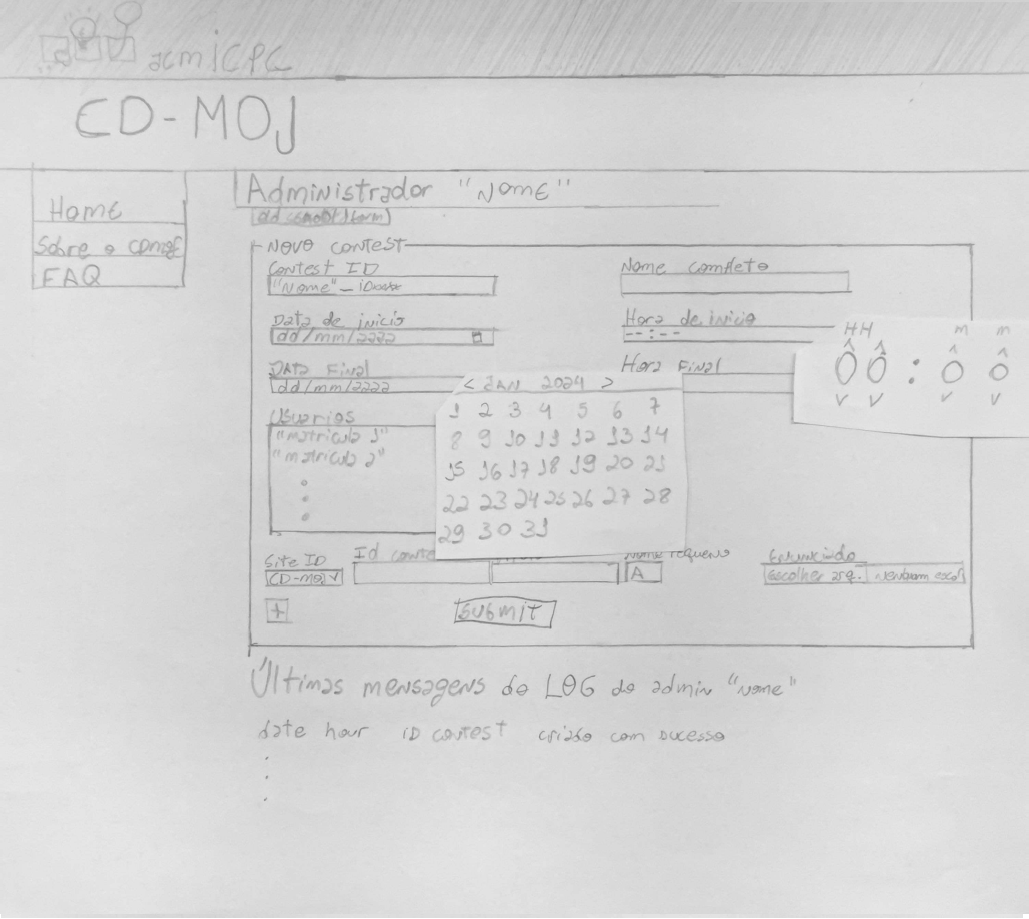 acmICPC
CD-MOJ
Home
Sobre o
FAQ
Administrador "Nome"
Novo contest
Contest ID
"Nome"_
Nome completo
Data de inicio
dd/mm/2222
Hora de inicio
--:--
HH m m
00:00
Data Final
dd/mm/2222
Hora Final
< JAN 2024 >
1 2 3 4 5 6 7
8 9 10 11 12 13 14
15 16 17 18 19 20 21
22 23 24 25 26 27 28
29 30 31
Usuarios
"matricula 1"
"matricula 2"
Site ID
Id
Nome Pequeno
Enunciado
CD-MOJ v
A
Escolher arq.
+
SUBMIT
Últimas mensagens do LOG do admin "Nome"
date hour ID contest criado com sucesso